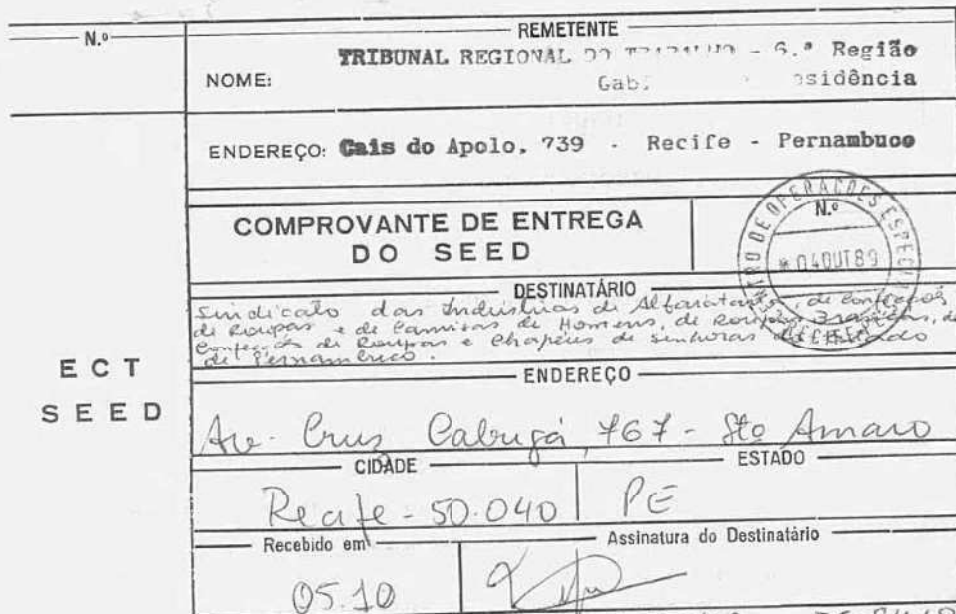 N.º
REMETENTE
TRIBUNAL REGIONAL DO - 6.ª Região
NOME:
ENDEREÇO: Cais do Apolo, 739 - Recife - Pernambuco
COMPROVANTE DE ENTREGA
DO SEED
N.º
CENTRO DE OPERAÇÕES
* 04 OUT 89
RECIFE
DESTINATÁRIO
Sindicato das Indústrias de Alfaiataria, de Confecções
de Roupas e de Camisas de Homens, de Roupas Brancas, de
Confecção de Roupas e Chapéus de Senhoras do Estado
de Pernambuco.
ECT
SEED
ENDEREÇO
Av. Cruz Cabugá, 767 - Sto Amaro
CIDADE
ESTADO
Recife - 50.040
PE
Recebido em
Assinatura do Destinatário
05.10